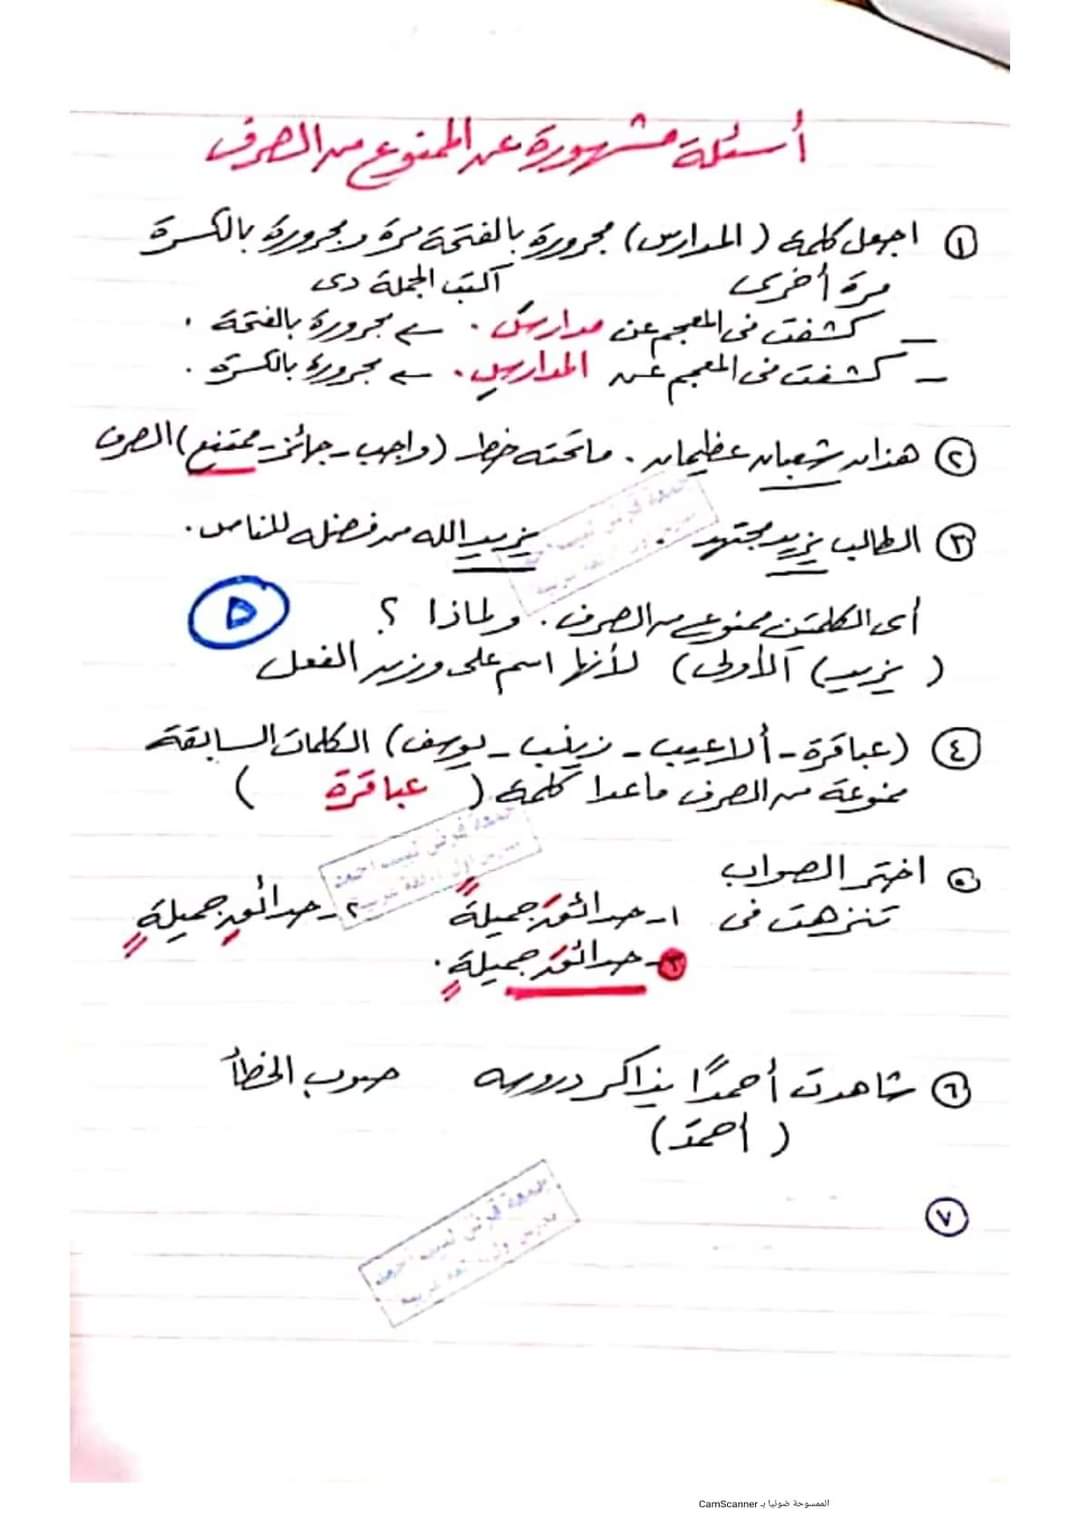 أسئلة مشهورة عن الممنوع من الصرف
① اجعل كلمة (المدارس) مجرورة بالفتحة مرة ومجرورة بالكسرة
مرة أخرى اكتب الجملة دى
ــ كشفت فى المعجم عن مدارسَ . ← مجرورة بالفتحة .
ــ كشفت فى المعجم عن المدارسِ . ← مجرورة بالكسرة .
② هذان شعبان عظيمان . ما تحته خط (واجب - جائز - ممتنع) الصرف
③ الطالب يزيد مجتهد . يزيد الله من فضله للناس .
أى الكلمتين ممنوع من الصرف . ولماذا ؟
٥
( يزيد) الأولى) لأنها اسم على وزن الفعل
④ (عباقرة - ألاعيب - زينب - يوسف) الكلمات السابقة
ممنوعة من الصرف ماعدا كلمة ( عباقرة )
⑤ اختر الصواب
تنزهت فى ١- حدائقَ جميلةً ٢- حدائقٍ جميلةٍ
٣- حدائقَ جميلةٍ .
⑥ شاهدت أحمدًا يذاكر دروسه صوب الخطأ
( أحمدَ )
⑦
الممسوحة ضوئيا بـ CamScanner